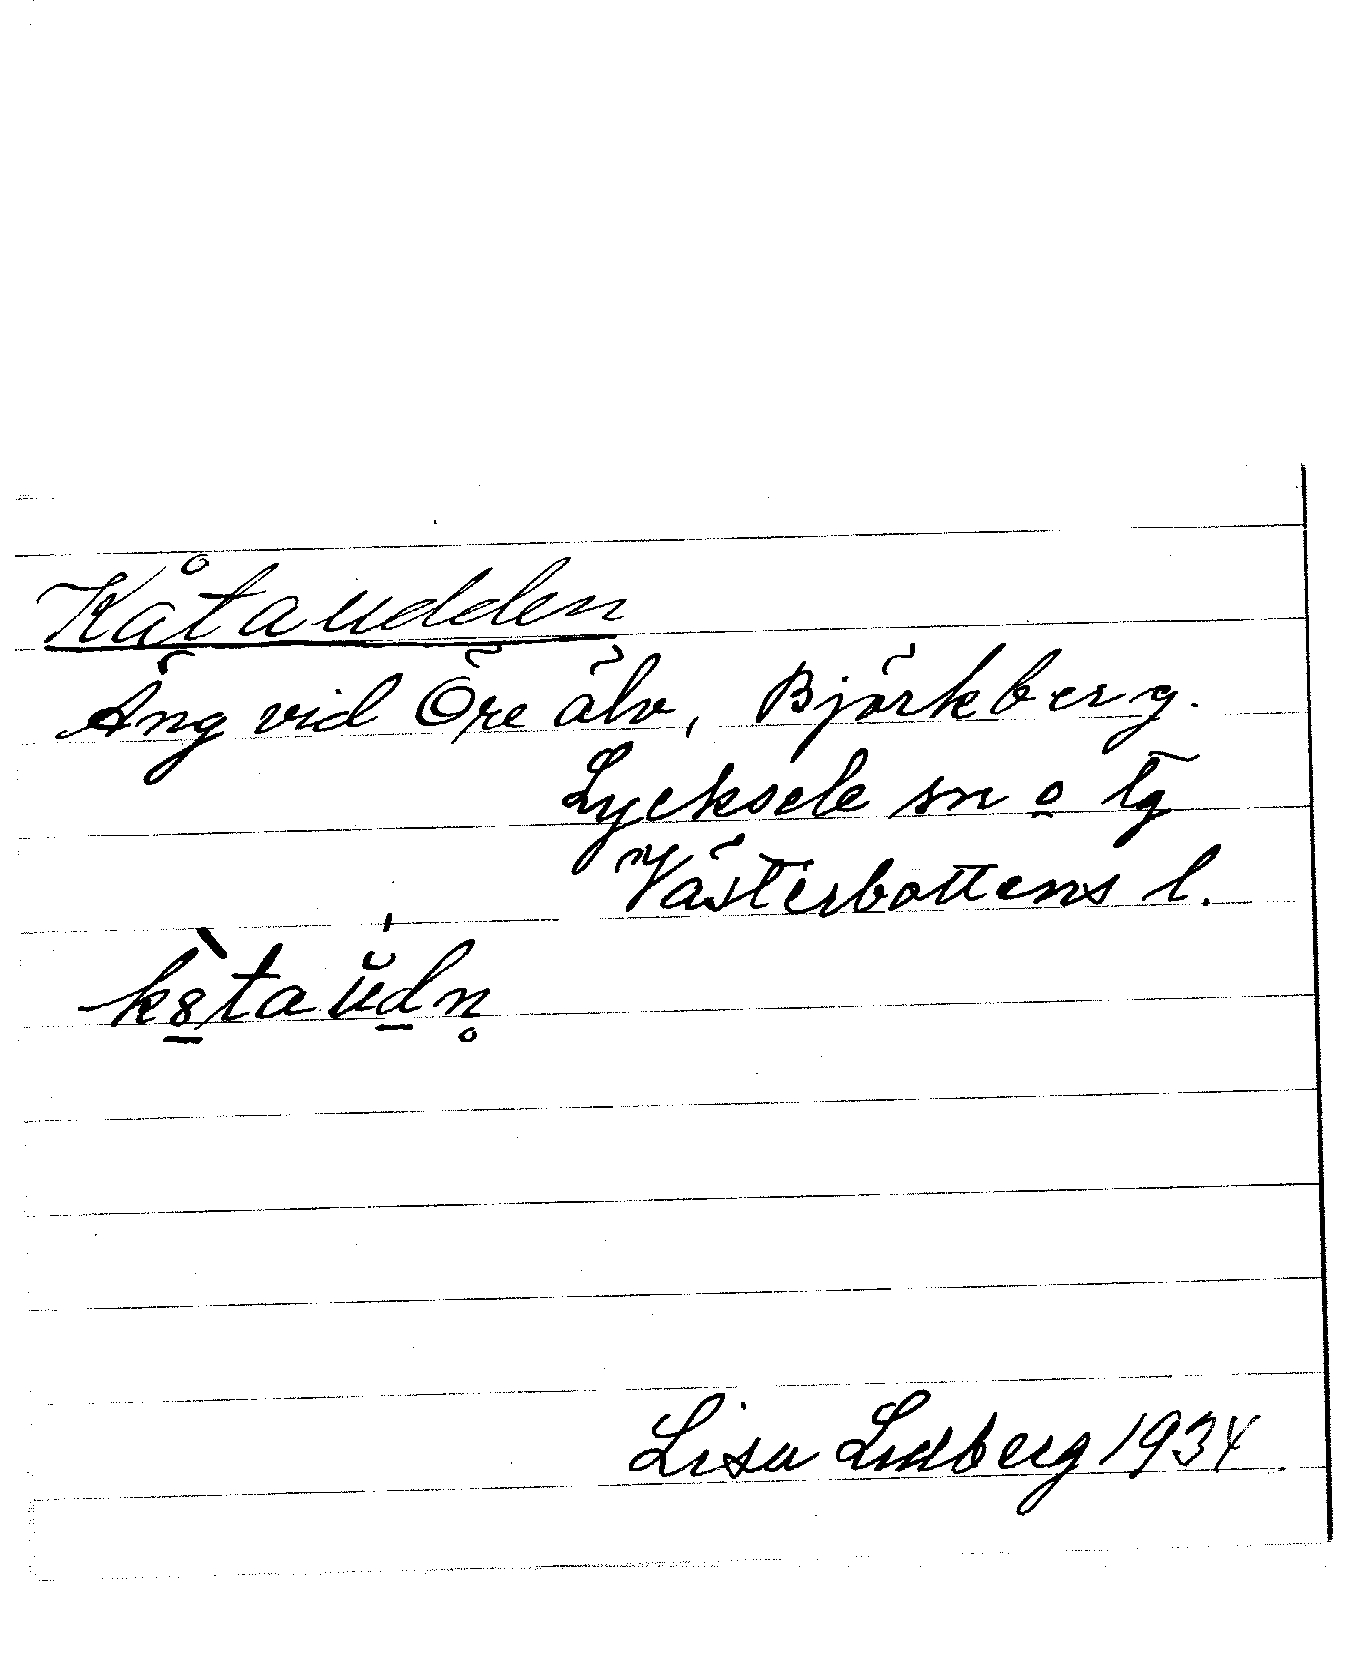 Kåtaudden
Äng vid Öre älv, Björkberg.
Lycksele sn o lg
Västerbottens l.
Lisa Lidberg 1934